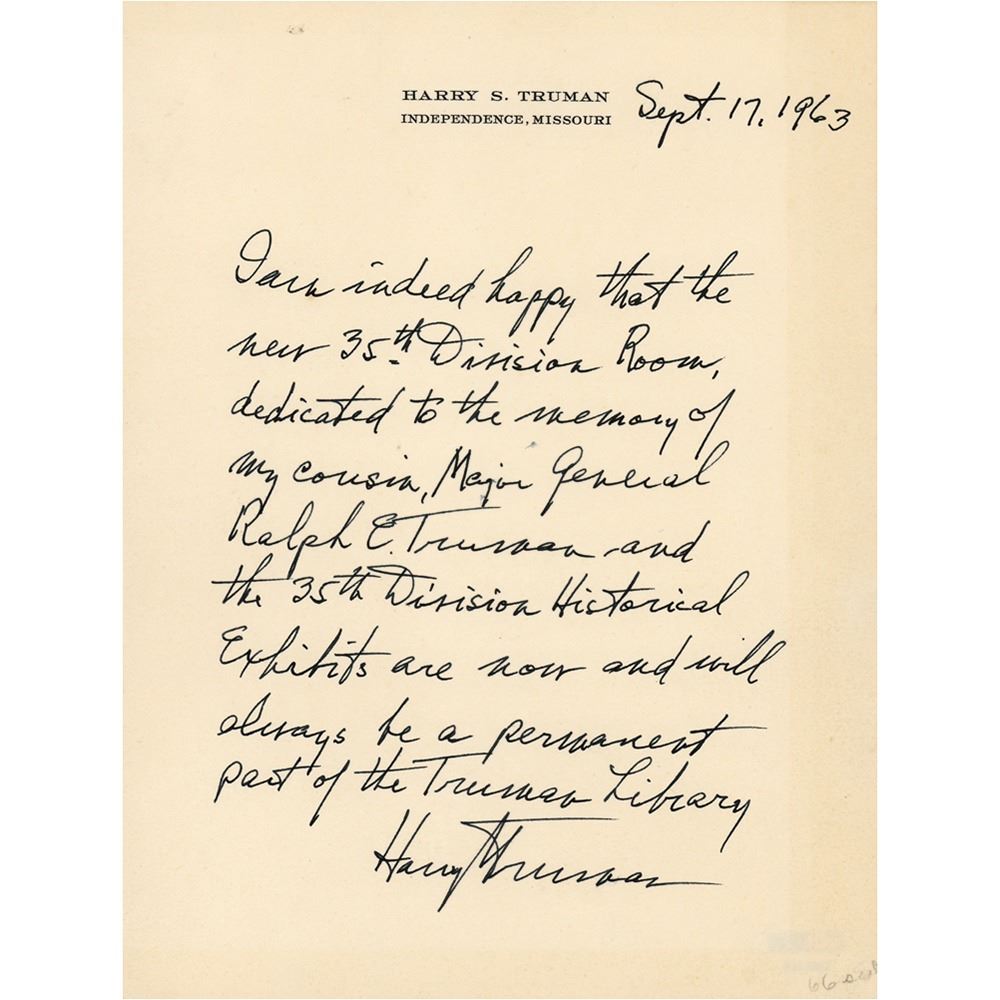 HARRY S. TRUMAN
INDEPENDENCE, MISSOURI
Sept. 17, 1963
I am indeed happy that the
new 35th Division Room,
dedicated to the memory of
my cousin, Major General
Ralph E. Truman and
the 35th Division Historical
Exhibits are now and will
always be a permanent
part of the Truman Library
Harry S Truman